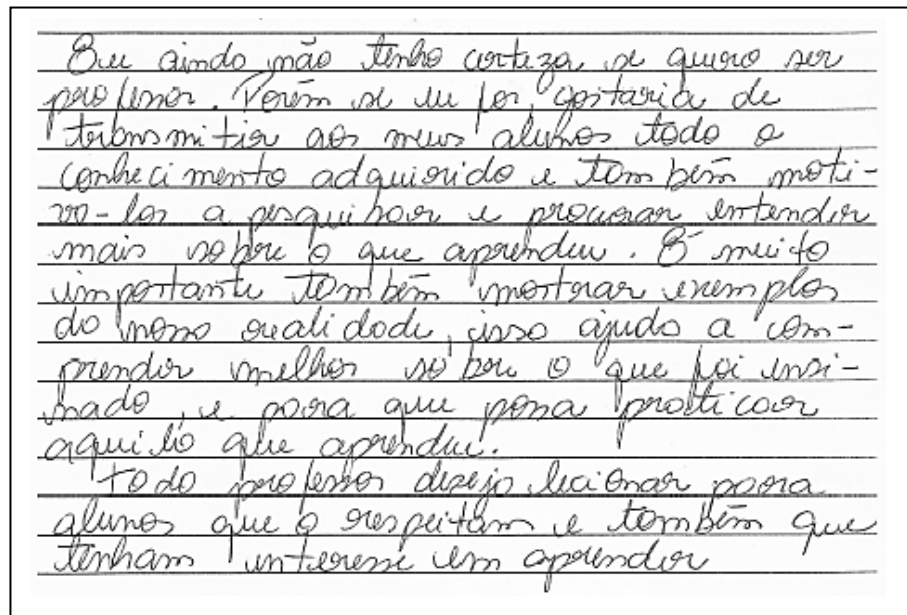 Eu ainda não tenho certeza se quero ser
professor. Porém se eu for, gostaria de
transmitir aos meus alunos todo o
conhecimento adquirido e também moti-
va-los a pesquisar e procurar entender
mais sobre o que aprendeu. É muito
importante também mostrar exemplos
da nossa realidade, isso ajuda a com-
prender melhor sobre o que foi ensi-
nado, e para que possa praticar
aquilo que aprendeu.
Todo professor deseja lecionar para
alunos que o respeitam e também que
tenham interesse em aprender